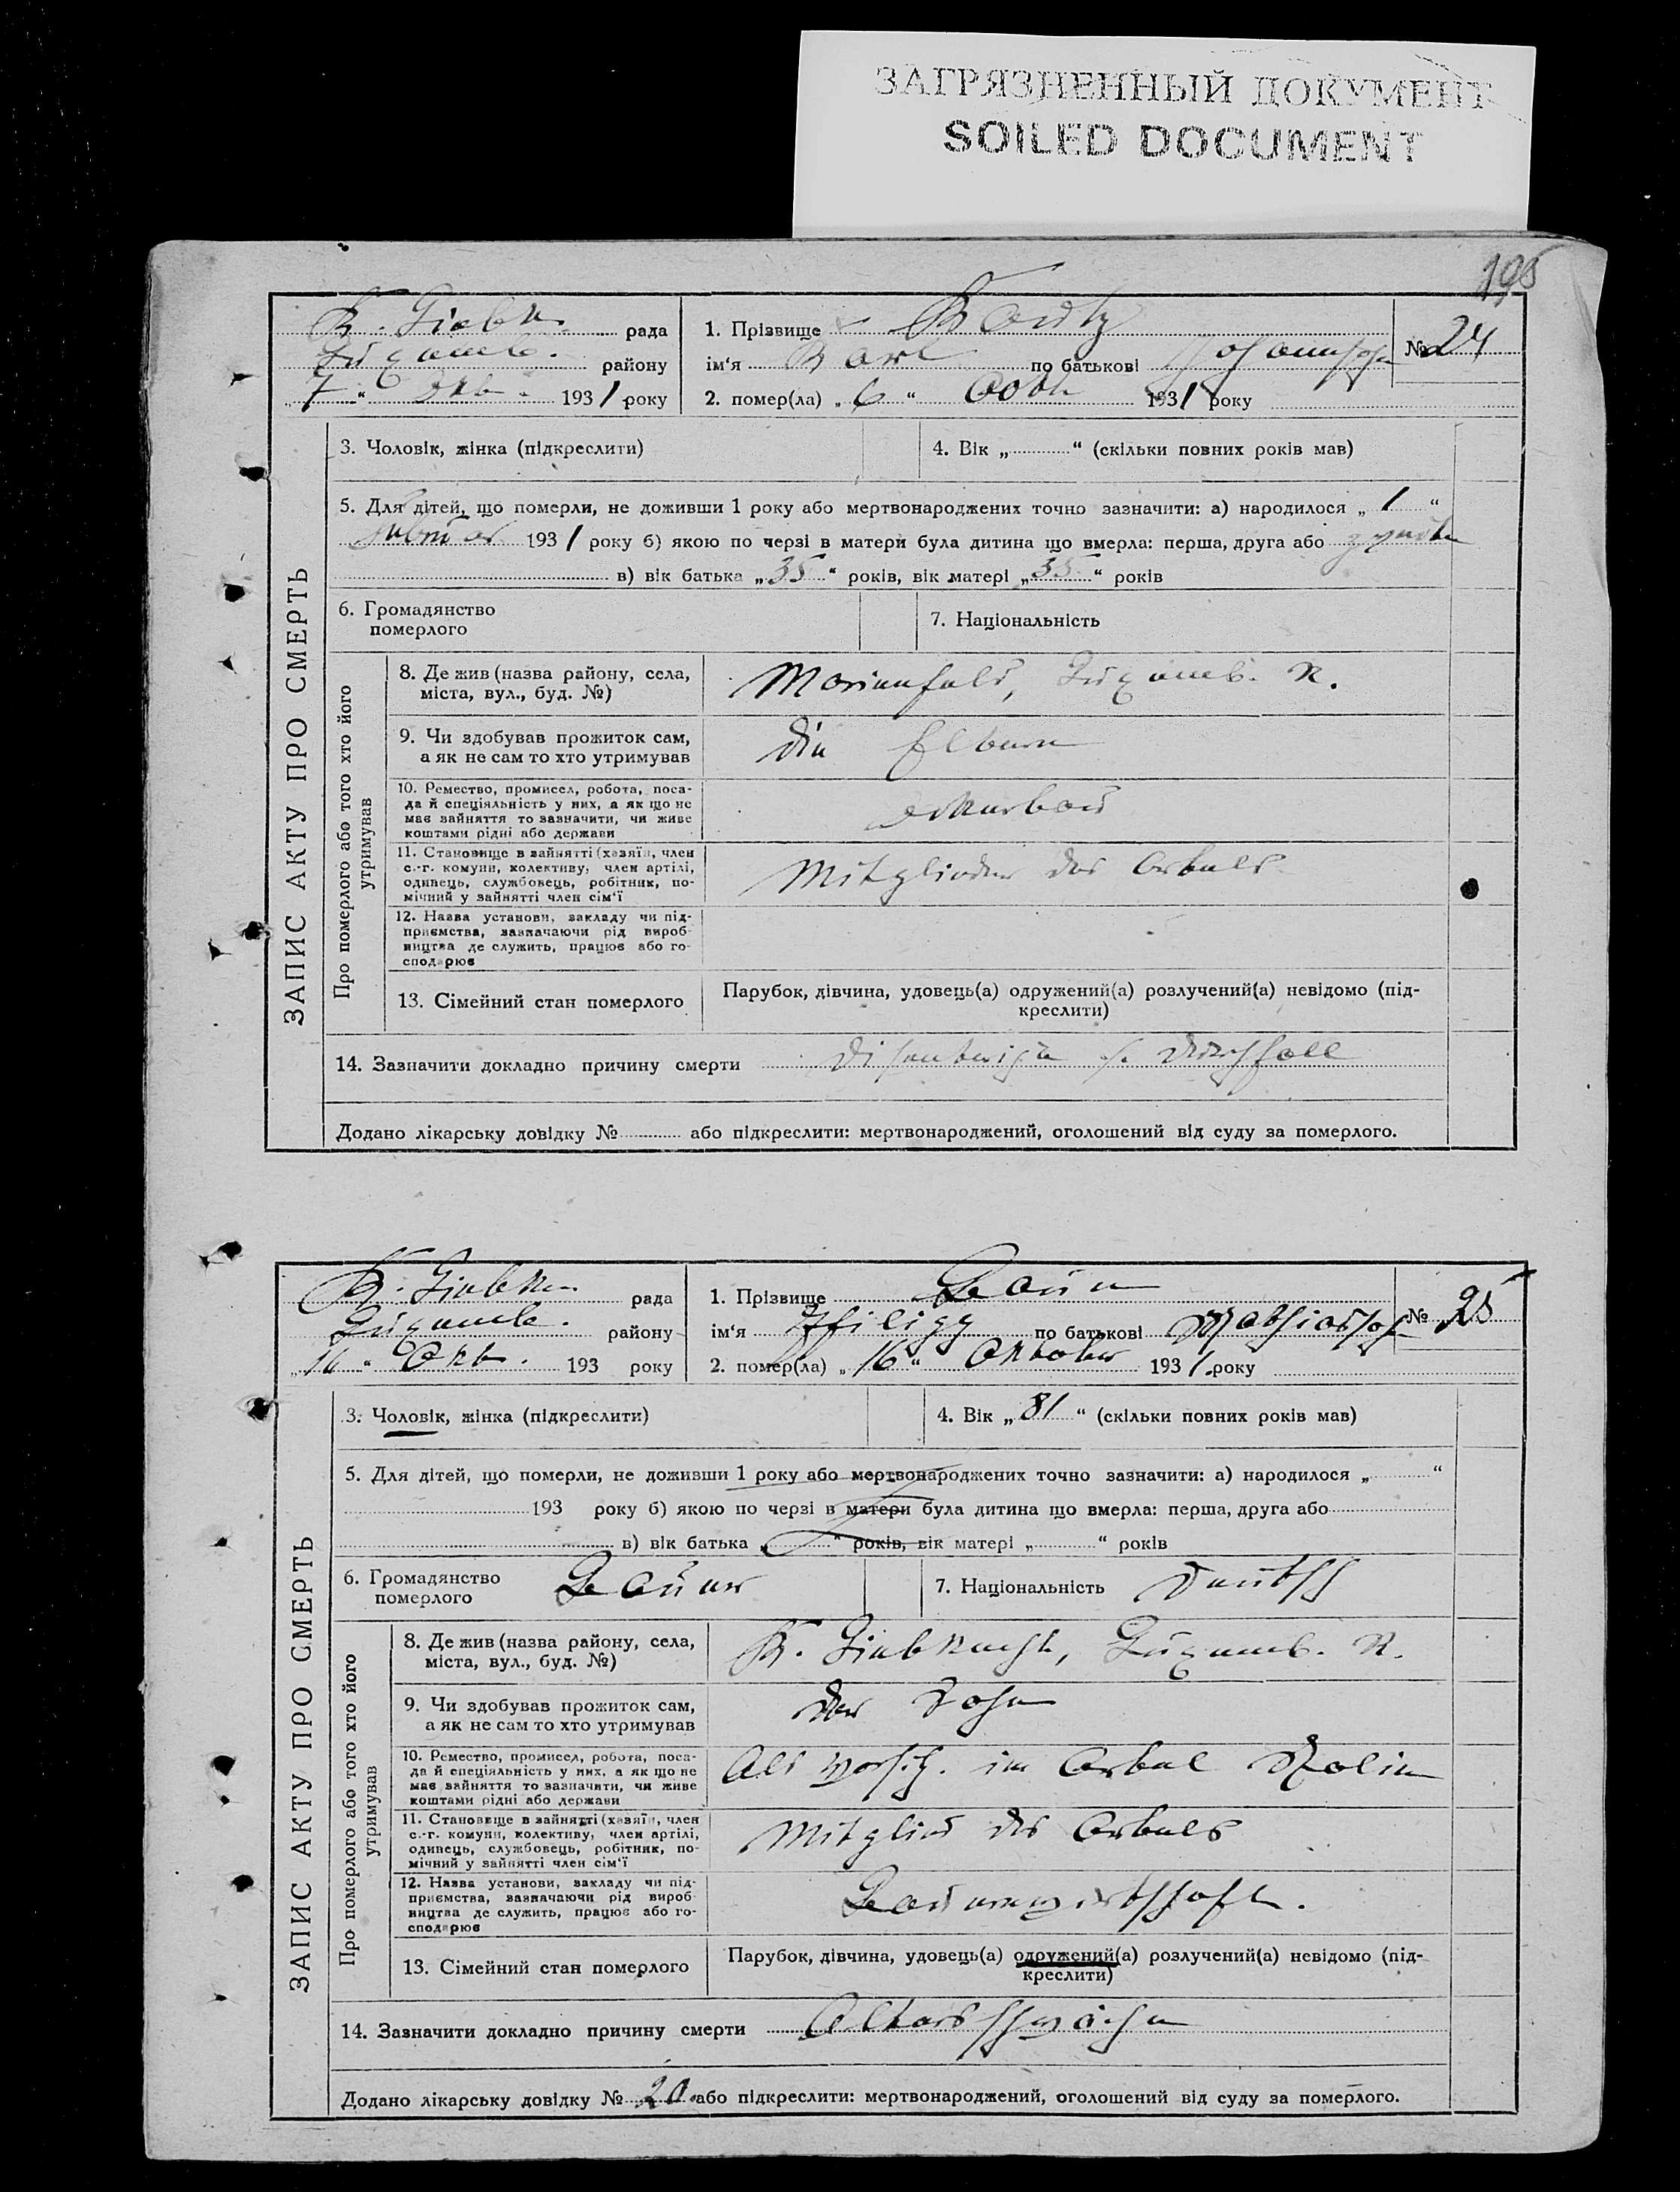 ЗАГРЯЗНЕННЫЙ ДОКУМЕНТ
SOILED DOCUMENT
195
ЗАПИС АКТУ ПРО СМЕРТЬ
K. Liebkn. рада
району
„7“ Okt. 1931 року
1. Прізвище Kautz
ім‘я Karl по батькові Johannsohn
№ 24
2. помер(ла) „6“ 1931 року
3. Чоловік, жінка (підкреслити)
4. Вік „ “ (скільки повних років мав)
5. Для дітей, що померли, не доживши 1 року або мертвонароджених точно зазначити: а) народилося „1“
1931 року б) якою по черзі в матери була дитина що вмерла: перша, друга або
в) вік батька „35“ років, вік матері „35“ років
6. Громадянство
померлого
7. Національність
Про померлого або того хто його
утримував
8. Де жив (назва району, села,
міста, вул., буд. №)
Marienfeld, R.
9. Чи здобував прожиток сам,
а як не сам то хто утримував
die Eltern
10. Ремество, промисел, робота, поса-
да й спеціяльність у них, а як що не
має зайняття то зазначити, чи живе
коштами рідні або держави
Ackerbau
11. Становище в зайнятті (хазяїн, член
с.-г. комуни, колективу, член артілі,
одинець, службовець, робітник, по-
мічний у зайнятті член сім‘ї
Mitglieder des Artels
12. Назва установи, закладу чи під-
приємства, зазначаючи рід вироб-
ництва де служить, працює або го-
сподарює
13. Сімейний стан померлого
Парубок, дівчина, удовець(а) одружений(а) розлучений(а) невідомо (під-
креслити)
14. Зазначити докладно причину смерти Durchfall
Додано лікарську довідку № або підкреслити: мертвонароджений, оголошений від суду за померлого.
ЗАПИС АКТУ ПРО СМЕРТЬ
K. Liebkn. рада
району
„16“ Okt. 193 року
1. Прізвище Baun
ім‘я Philipp по батькові Mathiassohn
№ 25
2. помер(ла) „16“ Oktober 1931 року
3. Чоловік, жінка (підкреслити)
4. Вік „81“ (скільки повних років мав)
5. Для дітей, що померли, не доживши 1 року або мертвонароджених точно зазначити: а) народилося „ “
193 року б) якою по черзі в матери була дитина що вмерла: перша, друга або
в) вік батька „ “ років, вік матері „ “ років
6. Громадянство
померлого
Bauer
7. Національність Deutsch
Про померлого або того хто його
утримував
8. Де жив (назва району, села,
міста, вул., буд. №)
K. Liebknecht, R.
9. Чи здобував прожиток сам,
а як не сам то хто утримував
der Sohn
10. Ремество, промисел, робота, поса-
да й спеціяльність у них, а як що не
має зайняття то зазначити, чи живе
коштами рідні або держави
Als im Artel Stalin
11. Становище в зайнятті (хазяїн, член
с.-г. комуни, колективу, член артілі,
одинець, службовець, робітник, по-
мічний у зайнятті член сім‘ї
Mitglied des Artels
12. Назва установи, закладу чи під-
приємства, зазначаючи рід вироб-
ництва де служить, працює або го-
сподарює
Bauernwirtschaft.
13. Сімейний стан померлого
Парубок, дівчина, удовець(а) одружений(а) розлучений(а) невідомо (під-
креслити)
14. Зазначити докладно причину смерти Altersschwäche
Додано лікарську довідку № 20 або підкреслити: мертвонароджений, оголошений від суду за померлого.